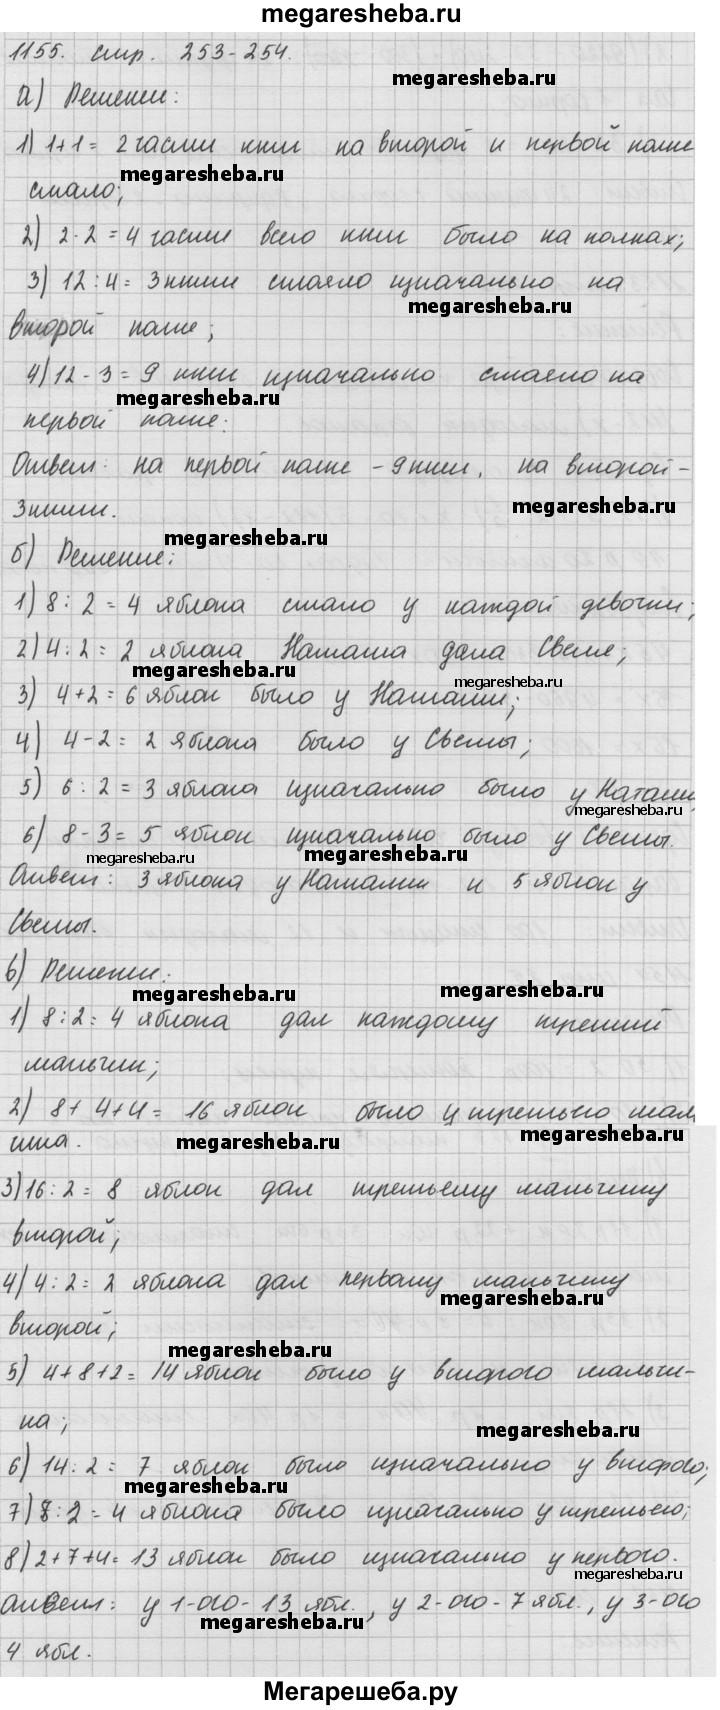 megaresheba.ru
1155. стр. 253-254.
megaresheba.ru
а) Решение:
1) 1+1= 2 части книг на второй и первой полке
megaresheba.ru
стало;
2) 2·2 = 4 части всего книг было на полках;
3) 12:4= 3 книги стояло изначально на
megaresheba.ru
второй полке;
4) 12-3=9 книг изначально стояло на
megaresheba.ru
первой полке.
Ответ: на первой полке - 9 книг, на второй-
3 книги.
megaresheba.ru
megaresheba.ru
б) Решение:
1) 8:2=4 яблока стало у каждой девочки;
2) 4:2=2 яблока Наташа дала Свете;
megaresheba.ru
megaresheba.ru
3) 4+2=6 яблок было у Наташи;
4) 4-2=2 яблока было у Светы;
5) 6:2=3 яблока изначально было у Наташи
megaresheba.ru
6) 8-3=5 яблок изначально было у Светы.
megaresheba.ru
megaresheba.ru
Ответ: 3 яблока у Наташи и 5 яблок у
Светы.
в) Решение:
megaresheba.ru
megaresheba.ru
1) 8:2=4 яблока дал каждому третий
мальчик;
2) 8+4+4= 16 яблок было у третьего маль
чика.
megaresheba.ru
megaresheba.ru
3) 16:2=8 яблок дал третьему мальчику
второй;
4) 4:2=2 яблока дал первому мальчику
megaresheba.ru
второй;
megaresheba.ru
5) 4+8+2=14 яблок было у второго мальчи-
ка;
megaresheba.ru
6) 14:2=7 яблок было изначально у второго;
megaresheba.ru
7) 8:2=4 яблока было изначально у третьего;
8) 2+7+4=13 яблок было изначально у первого.
megaresheba.ru
Ответ: у 1-ого-13 ябл., у 2-ого-7 ябл., у 3-ого
megaresheba.ru
4 ябл.
Мегарешеба.ру